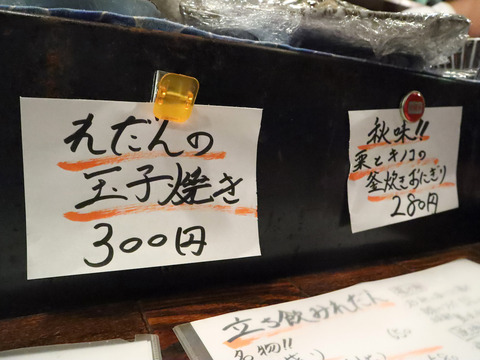 れだんの
玉子焼き
300円
秋味!!
栗とキノコの
釜炊きおにぎり
280円
立ち飲みれだん
名物!!